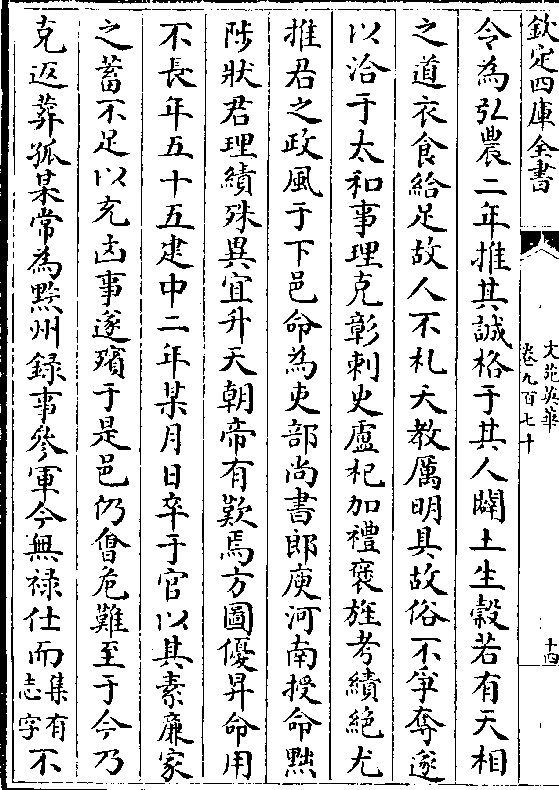 欽定四庫全書
文苑英華
卷九百七十
十四
令為弘農二年推其誠格于其人闢土生穀若有天相
之道衣食給足故人不札夭教厲明具故俗不爭奪遂
以洽于太和事理克彰刺史盧杞加禮褒旌考績絶尤
推君之政風于下邑命為吏部尚書郎庾河南授命黜
陟狀君理績殊異宜升天朝帝有歎焉方圖優昇命用
不長年五十五建中二年某月日卒于官以其素廉家
之蓄不足以充凶事遂殯于是邑仍㑹危難至于今乃
克返葬孤某常為黔州録事參軍今無禄仕而集有志字不